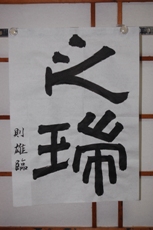 之瑞
則雄臨